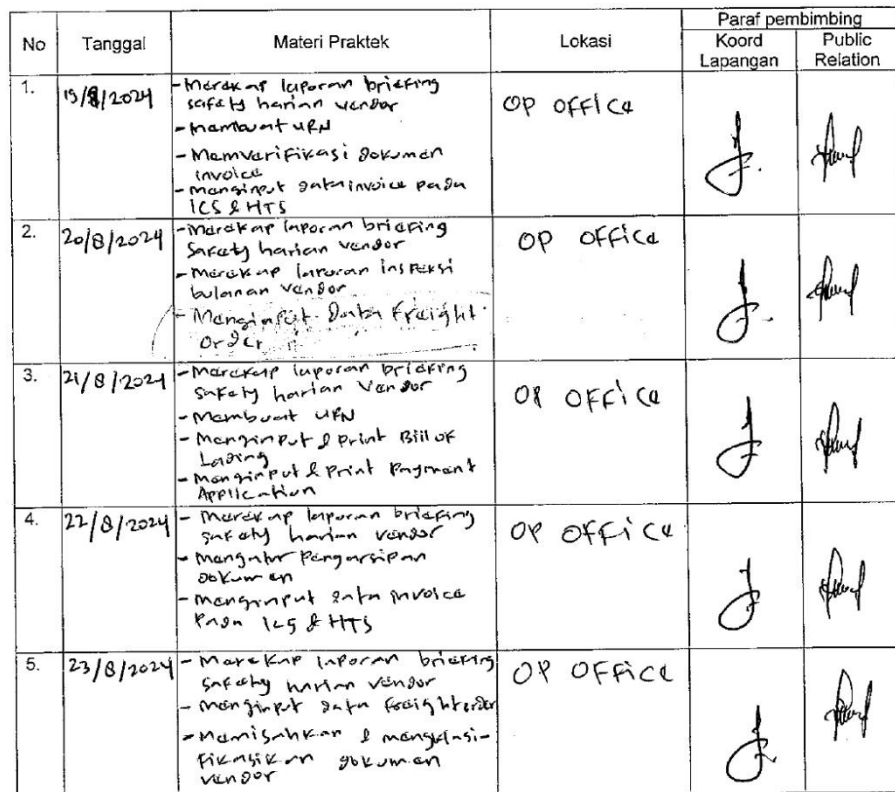 No Tanggal Materi Praktek Lokasi Paraf pembimbing
Koord Lapangan Public Relation
1. 19/8/2024 -Merekap laporan briefing OP OFFice
safety harian vendor
-Membuat URN
-Memverifikasi dokumen
invoice
-Menginput data invoice pada
ICS & HTS
2. 20/8/2024 -Merekap laporan briefing OP OFFice
safety harian vendor
-Merekap laporan inspeksi
bulanan vendor
-Menginput Data Freight
Order
3. 21/8/2024 -Merekap laporan briefing OP OFFice
safety harian vendor
-Membuat URN
-Menginput & print Bill OF
Lading
-Menginput & print Payment
Application
4. 22/8/2024 - Merekap laporan briefing OP OFFice
safety harian vendor
-Mengatur Pengarsipan
dokumen
-menginput data invoice
Pada ICS & HTS
5. 23/8/2024 - Merekap laporan briefing OP OFFice
safety harian vendor
- Menginput data freight order
-Memisahkan & mengklasi-
fikasikan dokumen
vendor